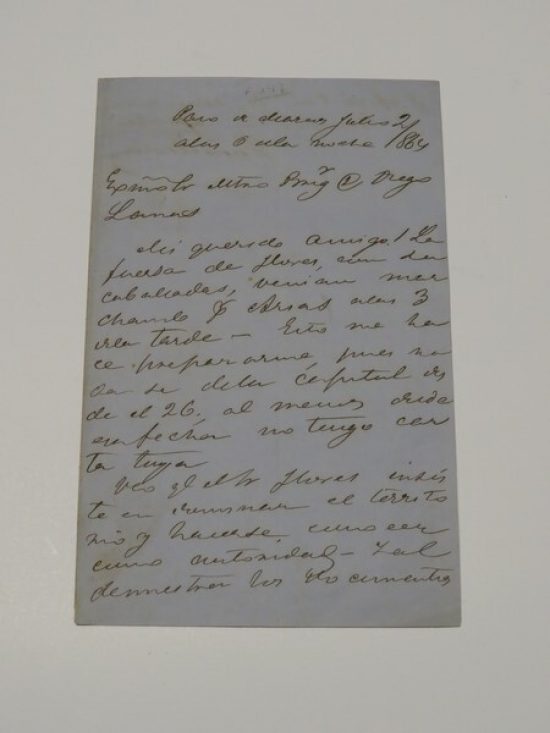 Paso de Julio 2/
a las 6 de la noche 1864
Exmo Sr Mtro Brigr Dn Diego
Lamas
Mi querido amigo! La
fuersa de Flores con su
caballadas, venian mar
chando pr Arias a las 3
de la tarde - Esto me ha
ce preparar me, pues na
da se de la Capital des
de el 26, al menos desde
esa fecha no tengo car
ta tuya
Veo q el Sr Flores insis
te en arruinar el territo
rio y hacerse conocer
como autoridad - Tal
demuestran los documentos